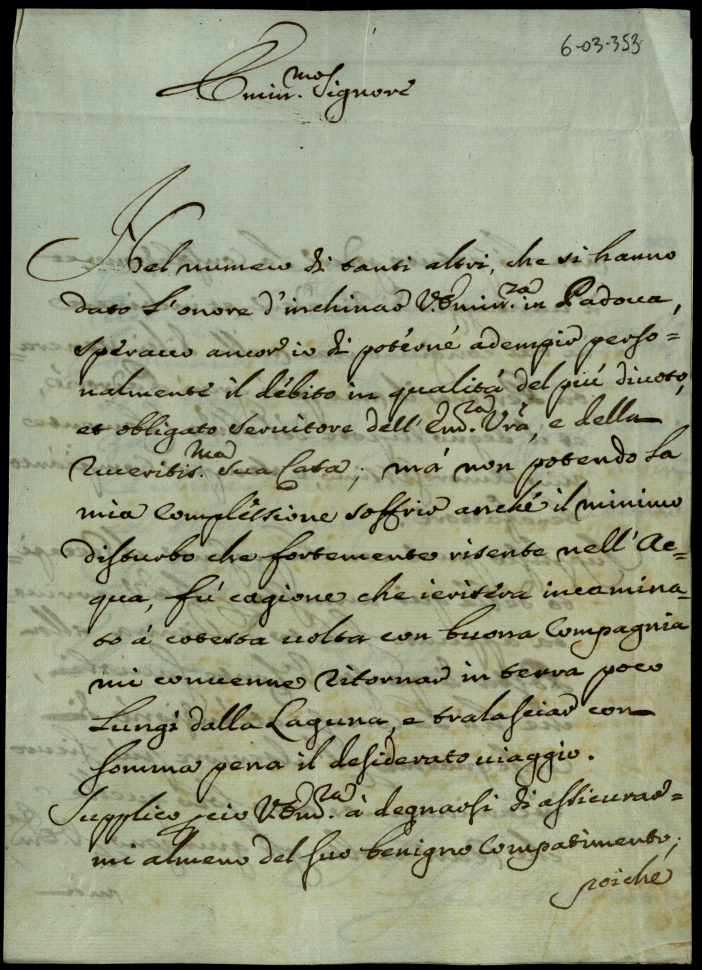 6-03-353
Emin.mo Signore
Nel numero di tanti altri, che si hanno
dato l'onore d'inchinar V. Emin.za in Padova,
speravo ancor io di poterne adempir perso=
nalmente il debito in qualità del più divoto,
et obligato servitore dell'Em.za Vrã, e della
Riveritis.ma Sua Casa; mà non potendo la
mia Complessione soffrir anche il minimo
disturbo che fortemente risente nell'Ac=
qua, fù cagione che ierisera incamina=
to à cotesta volta con buona Compagnia
mi convenne ritornar in terra poco
lungi dalla Laguna, e tralasciar con
somma pena il desiderato viaggio.
Supplico perciò V. Em.za à degnarsi di assicurar=
mi almeno del suo benigno Compatimento,
poiche